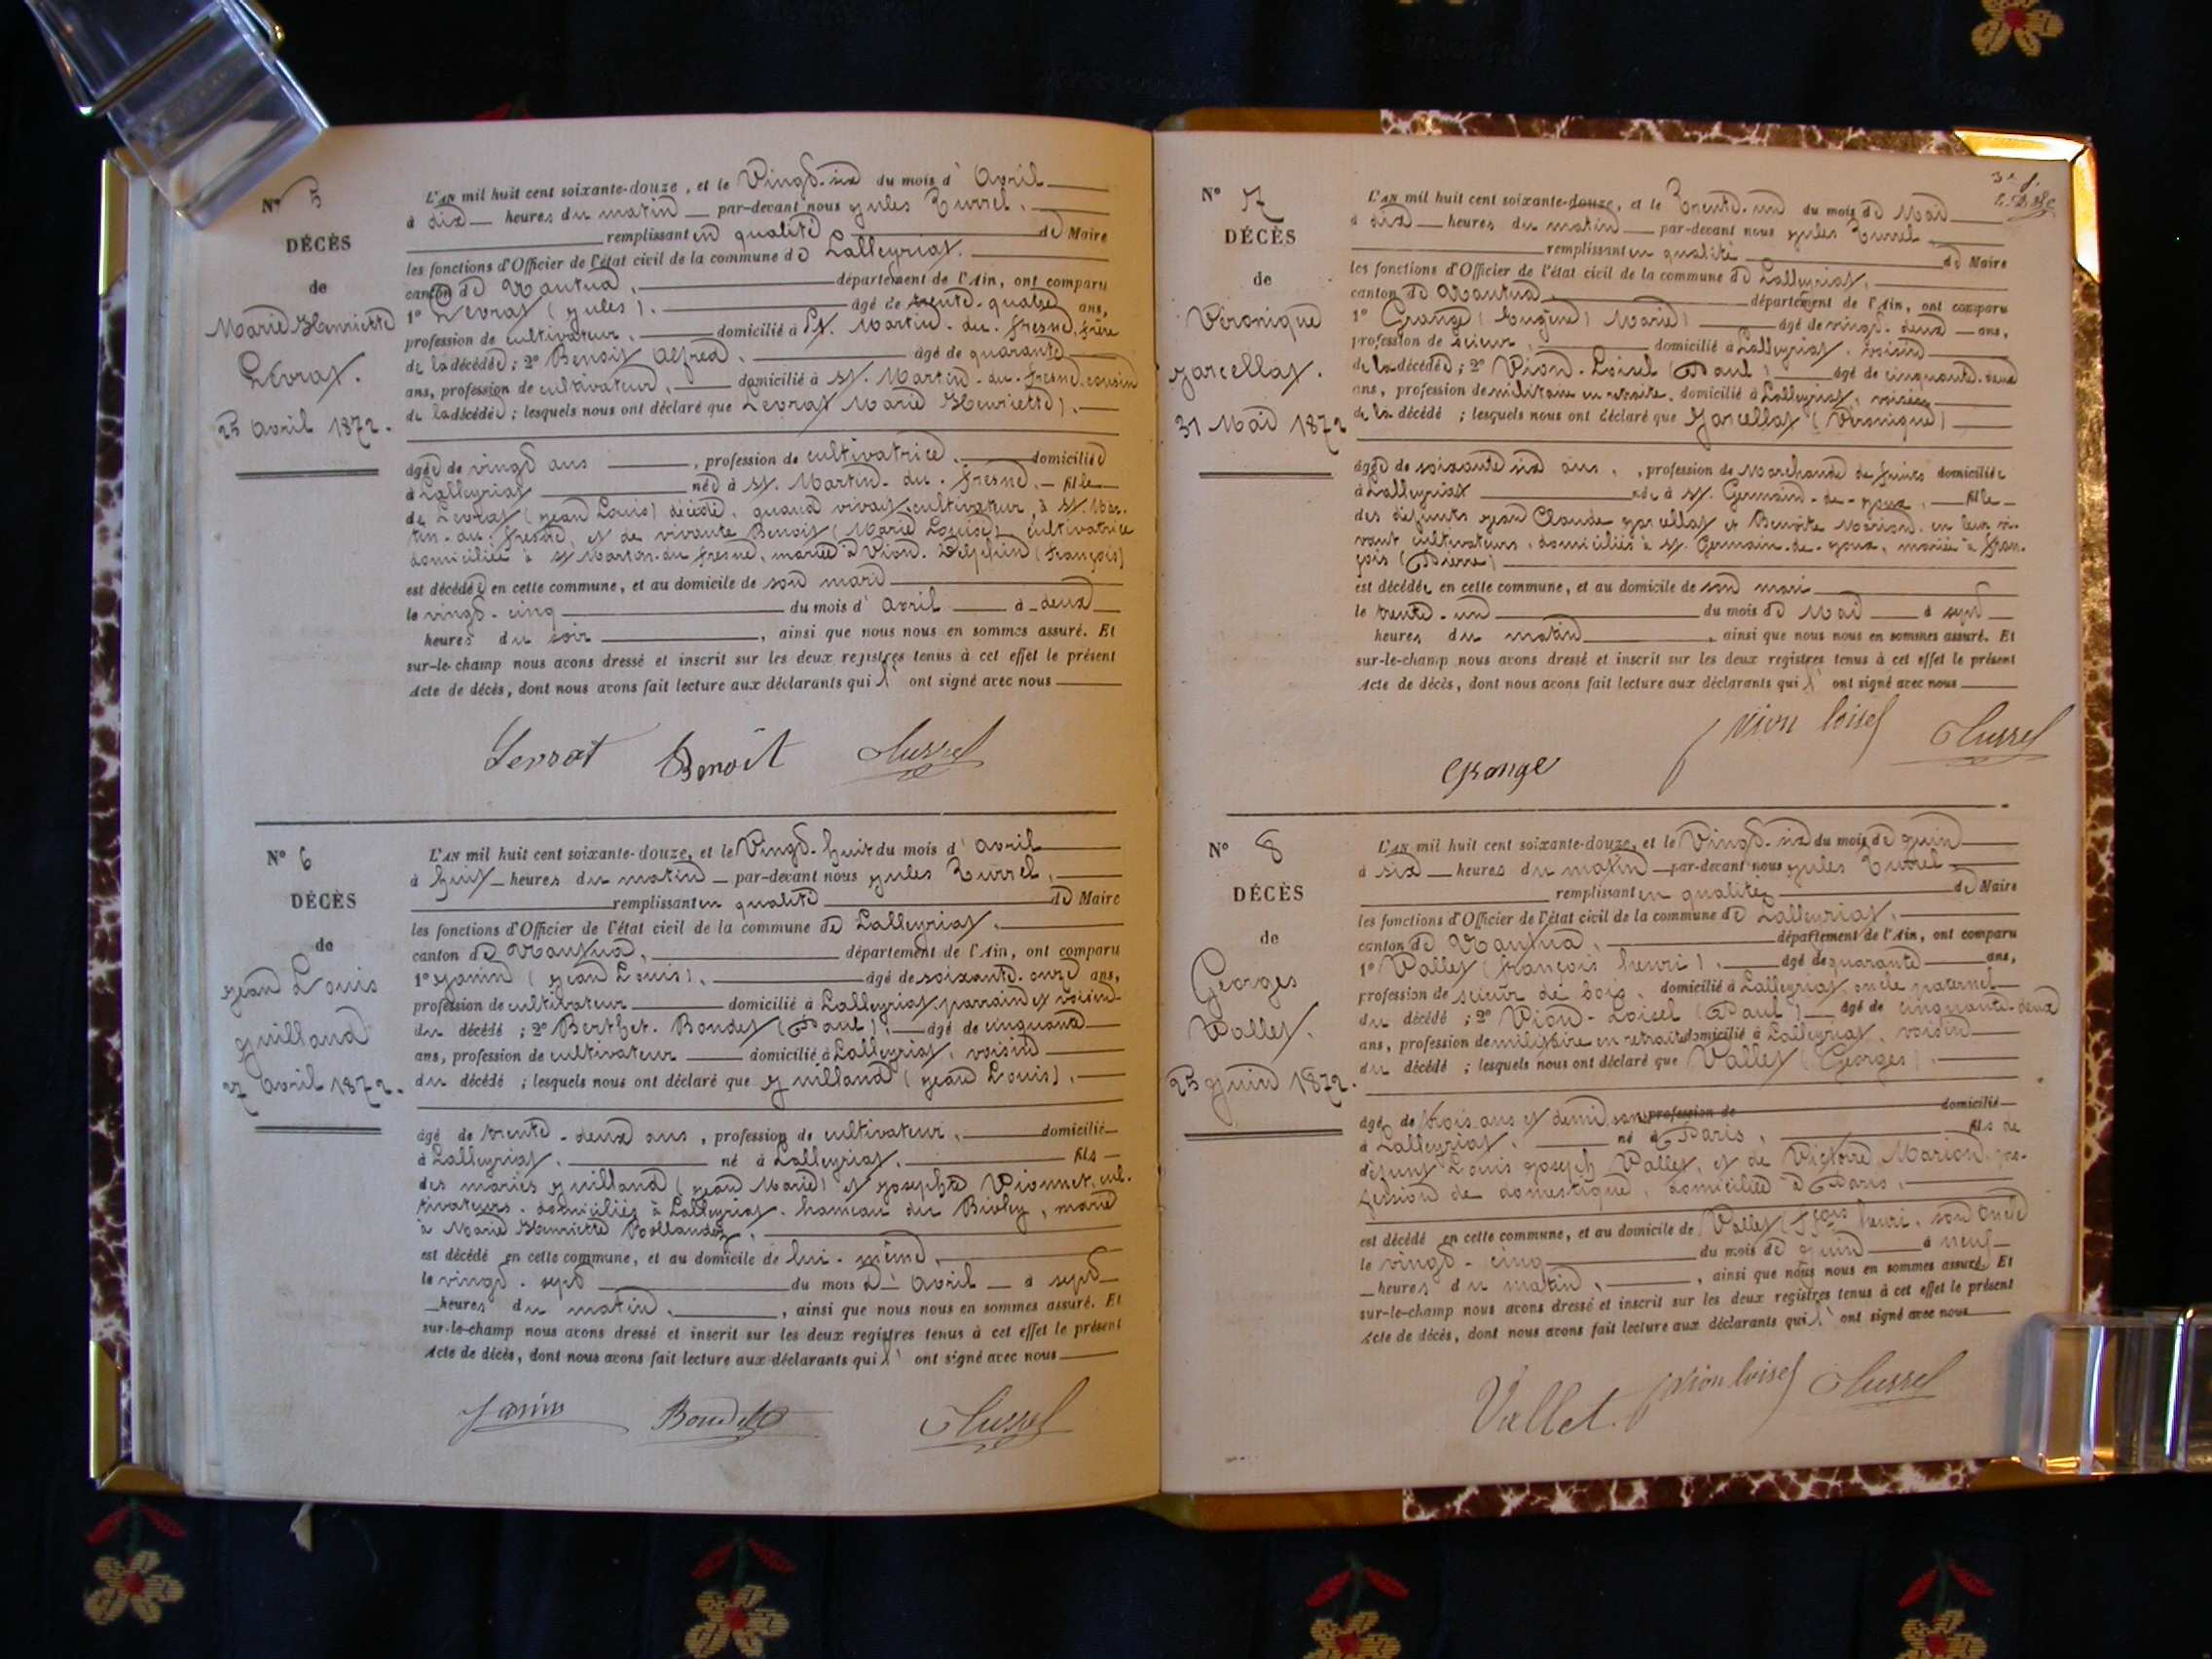 N° 5
DÉCÈS
de
Marie Henriette
Levrat.
25 Avril 1872.
L'AN mil huit cent soixante-douze, et le Vingt-six du mois d'Avril
à dix heures du matin par-devant nous Jules Turrel,
remplissant en qualité de Maire
les fonctions d'Officier de l'état civil de la commune de Lalleyriat.
canton de Nantua, département de l'Ain, ont comparu
1° Levrat (Jules). âgé de trente-quatre ans,
profession de cultivateur, domicilié à St. Martin-du-fresne, frère
de la décédée; 2° Benoit Alfred, âgé de quarante
ans, profession de cultivateur, domicilié à St. Martin-du-fresne, cousin
de la décédée; lesquels nous ont déclaré que Levrat Marie Henriette),
âgée de vingt ans, profession de cultivatrice, domiciliée
à Lalleyriat née à St. Martin-du-fresne, fille
de Levrat (Jean Louis) décédé, quand vivait cultivateur, à St. Mar-
tin-du-fresne, et de vivante Benoit (Marie Louise) cultivatrice
domiciliée à St Martin-du-fresne, mariée à Vion-Delphin (François)
est décédée en cette commune, et au domicile de son mari
le vingt-cinq du mois d'Avril à deux
heures du soir, ainsi que nous nous en sommes assuré. Et
sur-le-champ nous avons dressé et inscrit sur les deux registres tenus à cet effet le présent
Acte de décès, dont nous avons fait lecture aux déclarants qui l'ont signé avec nous
Levrat Benoît JTurrel
N° 6
DÉCÈS
de
Jean Louis
Guilland
27 Avril 1872.
L'AN mil huit cent soixante-douze, et le Vingt-huit du mois d'Avril
à huit heures du matin par-devant nous Jules Turrel,
remplissant en qualité de Maire
les fonctions d'Officier de l'état civil de la commune de Lalleyriat,
canton de Nantua, département de l'Ain, ont comparu
1° Janin (Jean Louis), âgé de soixante-onze ans,
profession de cultivateur domicilié à Lalleyriat, parrain et voisin
du décédé; 2° Berthet-Bondet (Paul), âgé de cinquante
ans, profession de cultivateur domicilié à Lalleyriat, voisin
du décédé; lesquels nous ont déclaré que Guilland (Jean Louis),
âgé de trente-deux ans, profession de cultivateur, domicilié
à Lalleyriat, né à Lalleyriat, fils
des mariés Guilland (Jean Marie) et Josephte Vionnet, cul-
tivateurs, domiciliés à Lalleyriat, hameau du Bioley, marié
à Marie Henriette Rollandez,
est décédé en cette commune, et au domicile de lui-même,
le vingt-sept du mois d'Avril à sept
heures du matin, ainsi que nous nous en sommes assuré. Et
sur-le-champ nous avons dressé et inscrit sur les deux registres tenus à cet effet le présent
Acte de décès, dont nous avons fait lecture aux déclarants qui l'ont signé avec nous
Janin Bondet JTurrel
N° 7
DÉCÈS
de
Véronique
Jarcellat.
31 Mai 1872
3e f.
L'AN mil huit cent soixante-douze, et le Trente-un du mois de Mai
à dix heures du matin par-devant nous Jules Turrel
remplissant en qualité de Maire
les fonctions d'Officier de l'état civil de la commune de Lalleyriat,
canton de Nantua, département de l'Ain, ont comparu
1° Grange (Eugène Marie) âgé de vingt-deux ans,
profession de scieur, domicilié à Lalleyriat, voisin
de la décédée; 2° Vion-Loisel (Paul) âgé de cinquante-deux
ans, profession de militaire en retraite, domicilié à Lalleyriat, voisin
de la décédé; lesquels nous ont déclaré que Jarcellat (Véronique)
âgée de soixante six ans, profession de Marchande de domiciliée
à Lalleyriat née à St. Germain-de-Joux, fille
des défunts Jean Claude Jarcellat et Benoite Marion, en leur vi-
vant cultivateurs, domiciliés à St. Germain-de-Joux, mariée à Fran-
çois (Pierre)
est décédée en cette commune, et au domicile de son mari
le trente-un du mois de Mai à sept
heures du matin, ainsi que nous nous en sommes assuré. Et
sur-le-champ nous avons dressé et inscrit sur les deux registres tenus à cet effet le présent
Acte de décès, dont nous avons fait lecture aux déclarants qui l'ont signé avec nous
Grange Vion loisel JTurrel
N° 8
DÉCÈS
de
Georges
Vallet.
25 Juin 1872.
L'AN mil huit cent soixante-douze, et le Vingt-six du mois de Juin
à six heures du matin par-devant nous Jules Turrel
remplissant en qualité de Maire
les fonctions d'Officier de l'état civil de la commune de Lalleyriat,
canton de Nantua, département de l'Ain, ont comparu
1° Vallet (françois henri), âgé de quarante ans,
profession de scieur de bois, domicilié à Lalleyriat, oncle paternel
du décédé; 2° Vion-Loisel (Paul) âgé de cinquante-deux
ans, profession de militaire en retraite domicilié à Lalleyriat, voisin
du décédé; lesquels nous ont déclaré que Vallet (Georges),
âgé de trois ans et demi, sans profession de domicilié
à Lalleyriat, né à Paris, fils de
défunt Louis Joseph Vallet, et de Victoire Marion, pro-
fession de domestique, domiciliée à Paris,
est décédé en cette commune, et au domicile de Vallet (fçois henri, son oncle
le vingt-cinq du mois de Juin à neuf
heures du matin, ainsi que nous nous en sommes assuré. Et
sur-le-champ nous avons dressé et inscrit sur les deux registres tenus à cet effet le présent
Acte de décès, dont nous avons fait lecture aux déclarants qui l'ont signé avec nous
Vallet. Vion loisel JTurrel